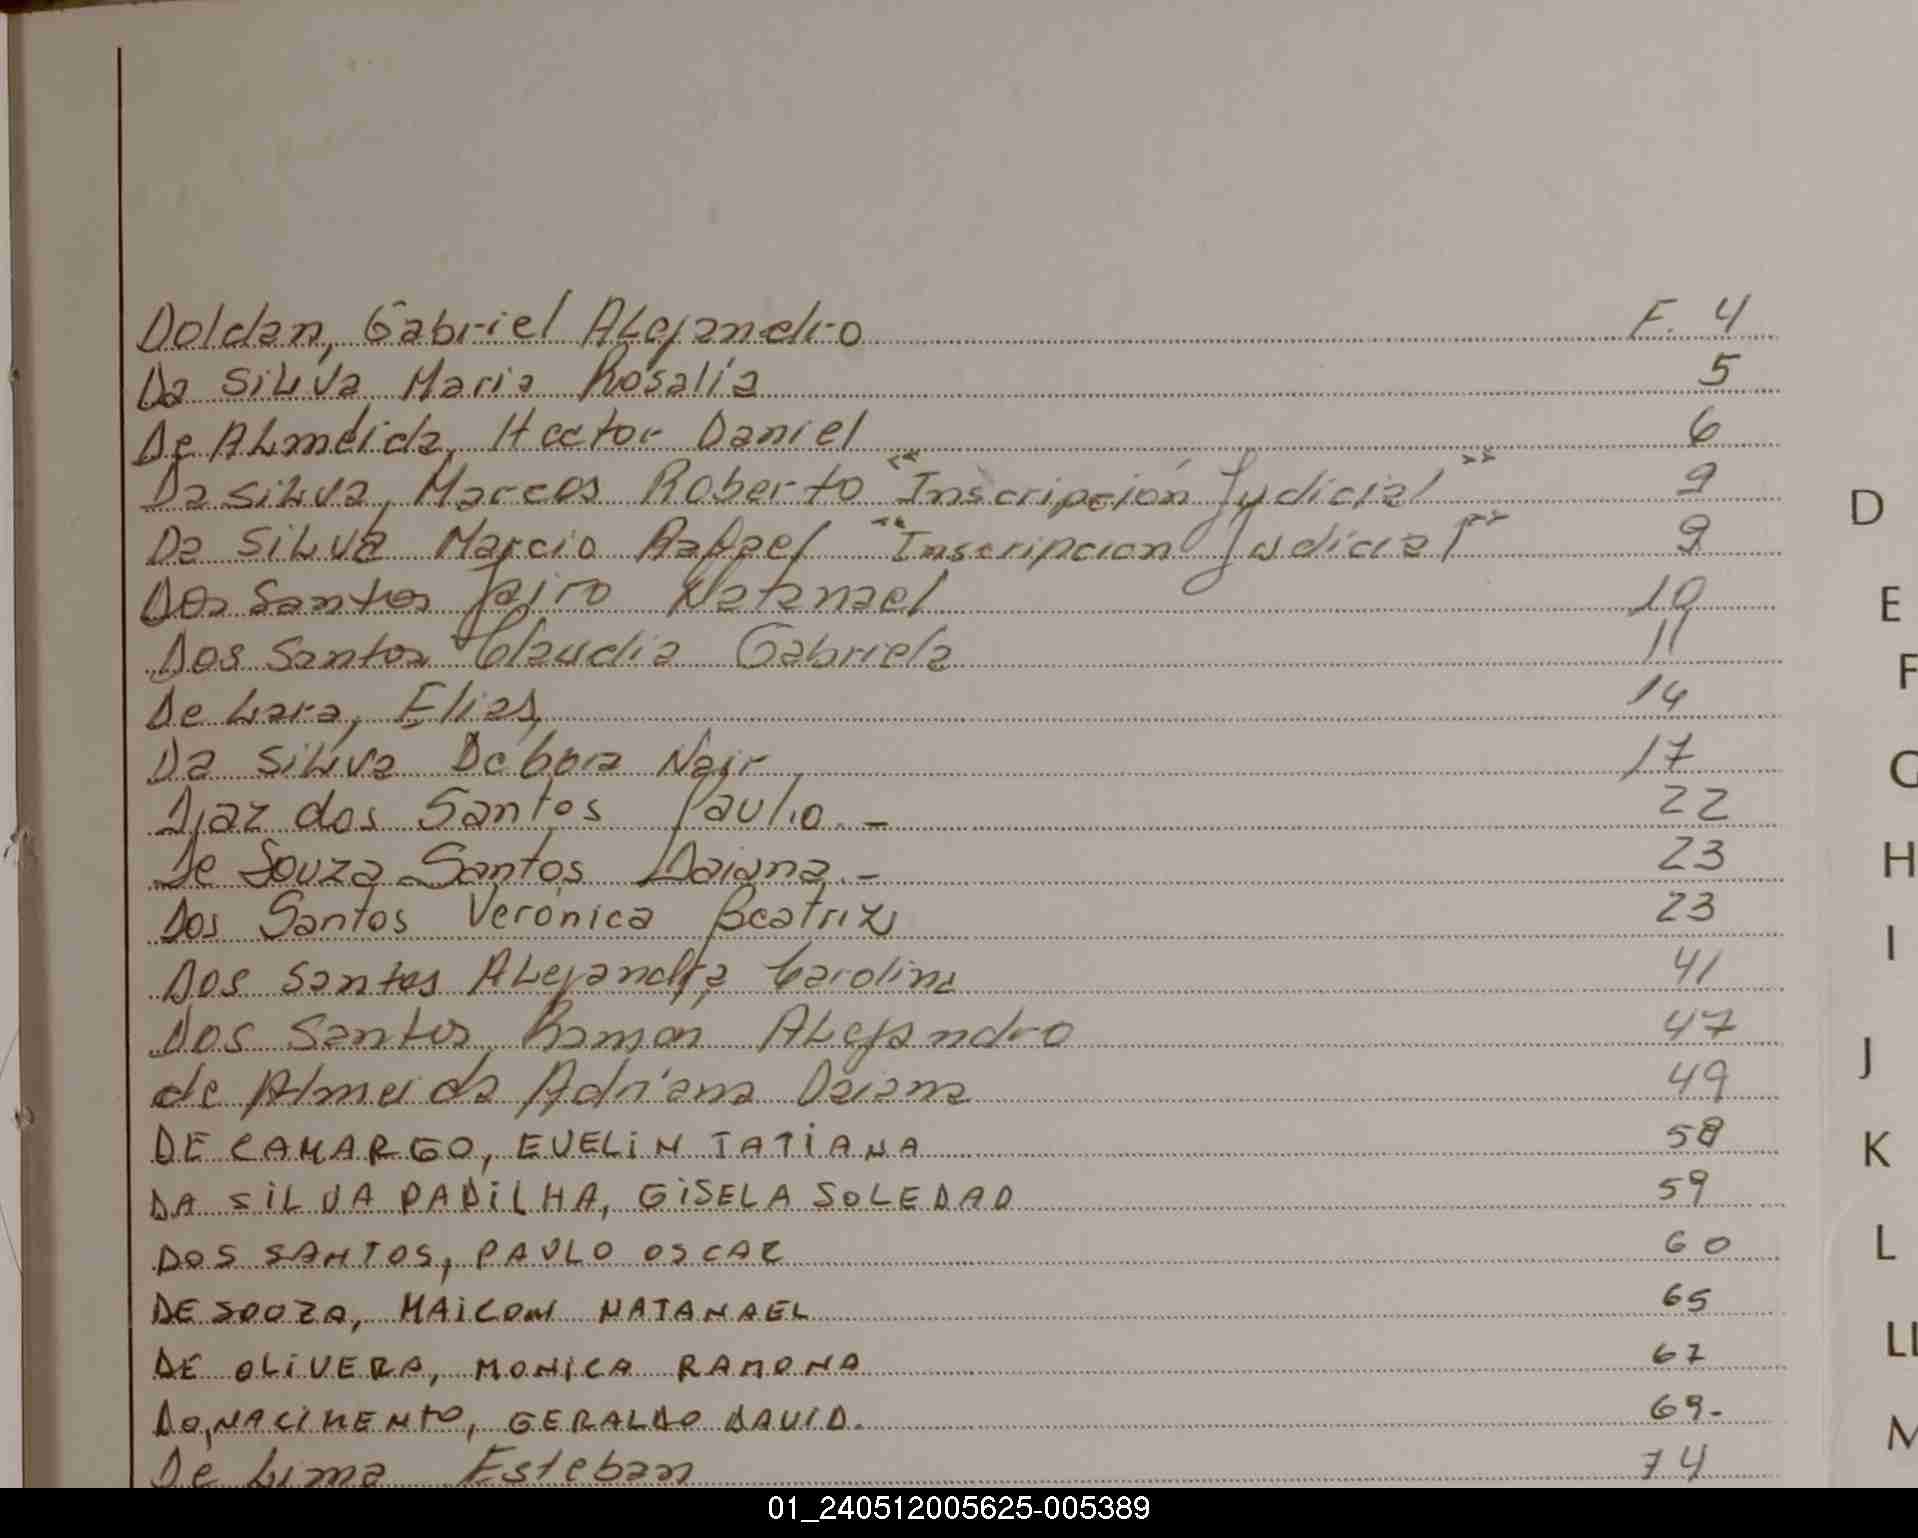 Doldan, Gabriel Alejandro F. 4
Da Silva Maria Rosalía 5
De Almeida, Hector Daniel 6
Da Silva, Marcos Roberto "Inscripción Judicial" 9
Da Silva Marcio Rafael "Inscripcion Judicial" 9
Dos Santos Jairo Natanael 10
Dos Santos Claudia Gabriela 11
De Lara, Elias, 14
Da Silva Débora Nair 17
Diaz dos Santos Paulio.- 22
De Souza Santos Daiana.- 23
Dos Santos Verónica Beatriz 23
Dos Santos Alejandra Carolina 41
Dos Santos Ramon Alejandro 47
de Almeida Adriana Daiana 49
DE CAMARGO, EVELIN TATIANA 58
DA SILVA PADILHA, GISELA SOLEDAD 59
DOS SANTOS, PAULO OSCAR 60
DE SOOZA, MAICON NATANAEL 65
DE OLIVERA, MONICA RAMONA 67
DO, NACIMENTO, GERALDO DAVID. 69.-
De Lima Esteban 74
D
E
F
G
H
I
J
K
L
LL
M
01_240512005625-005389